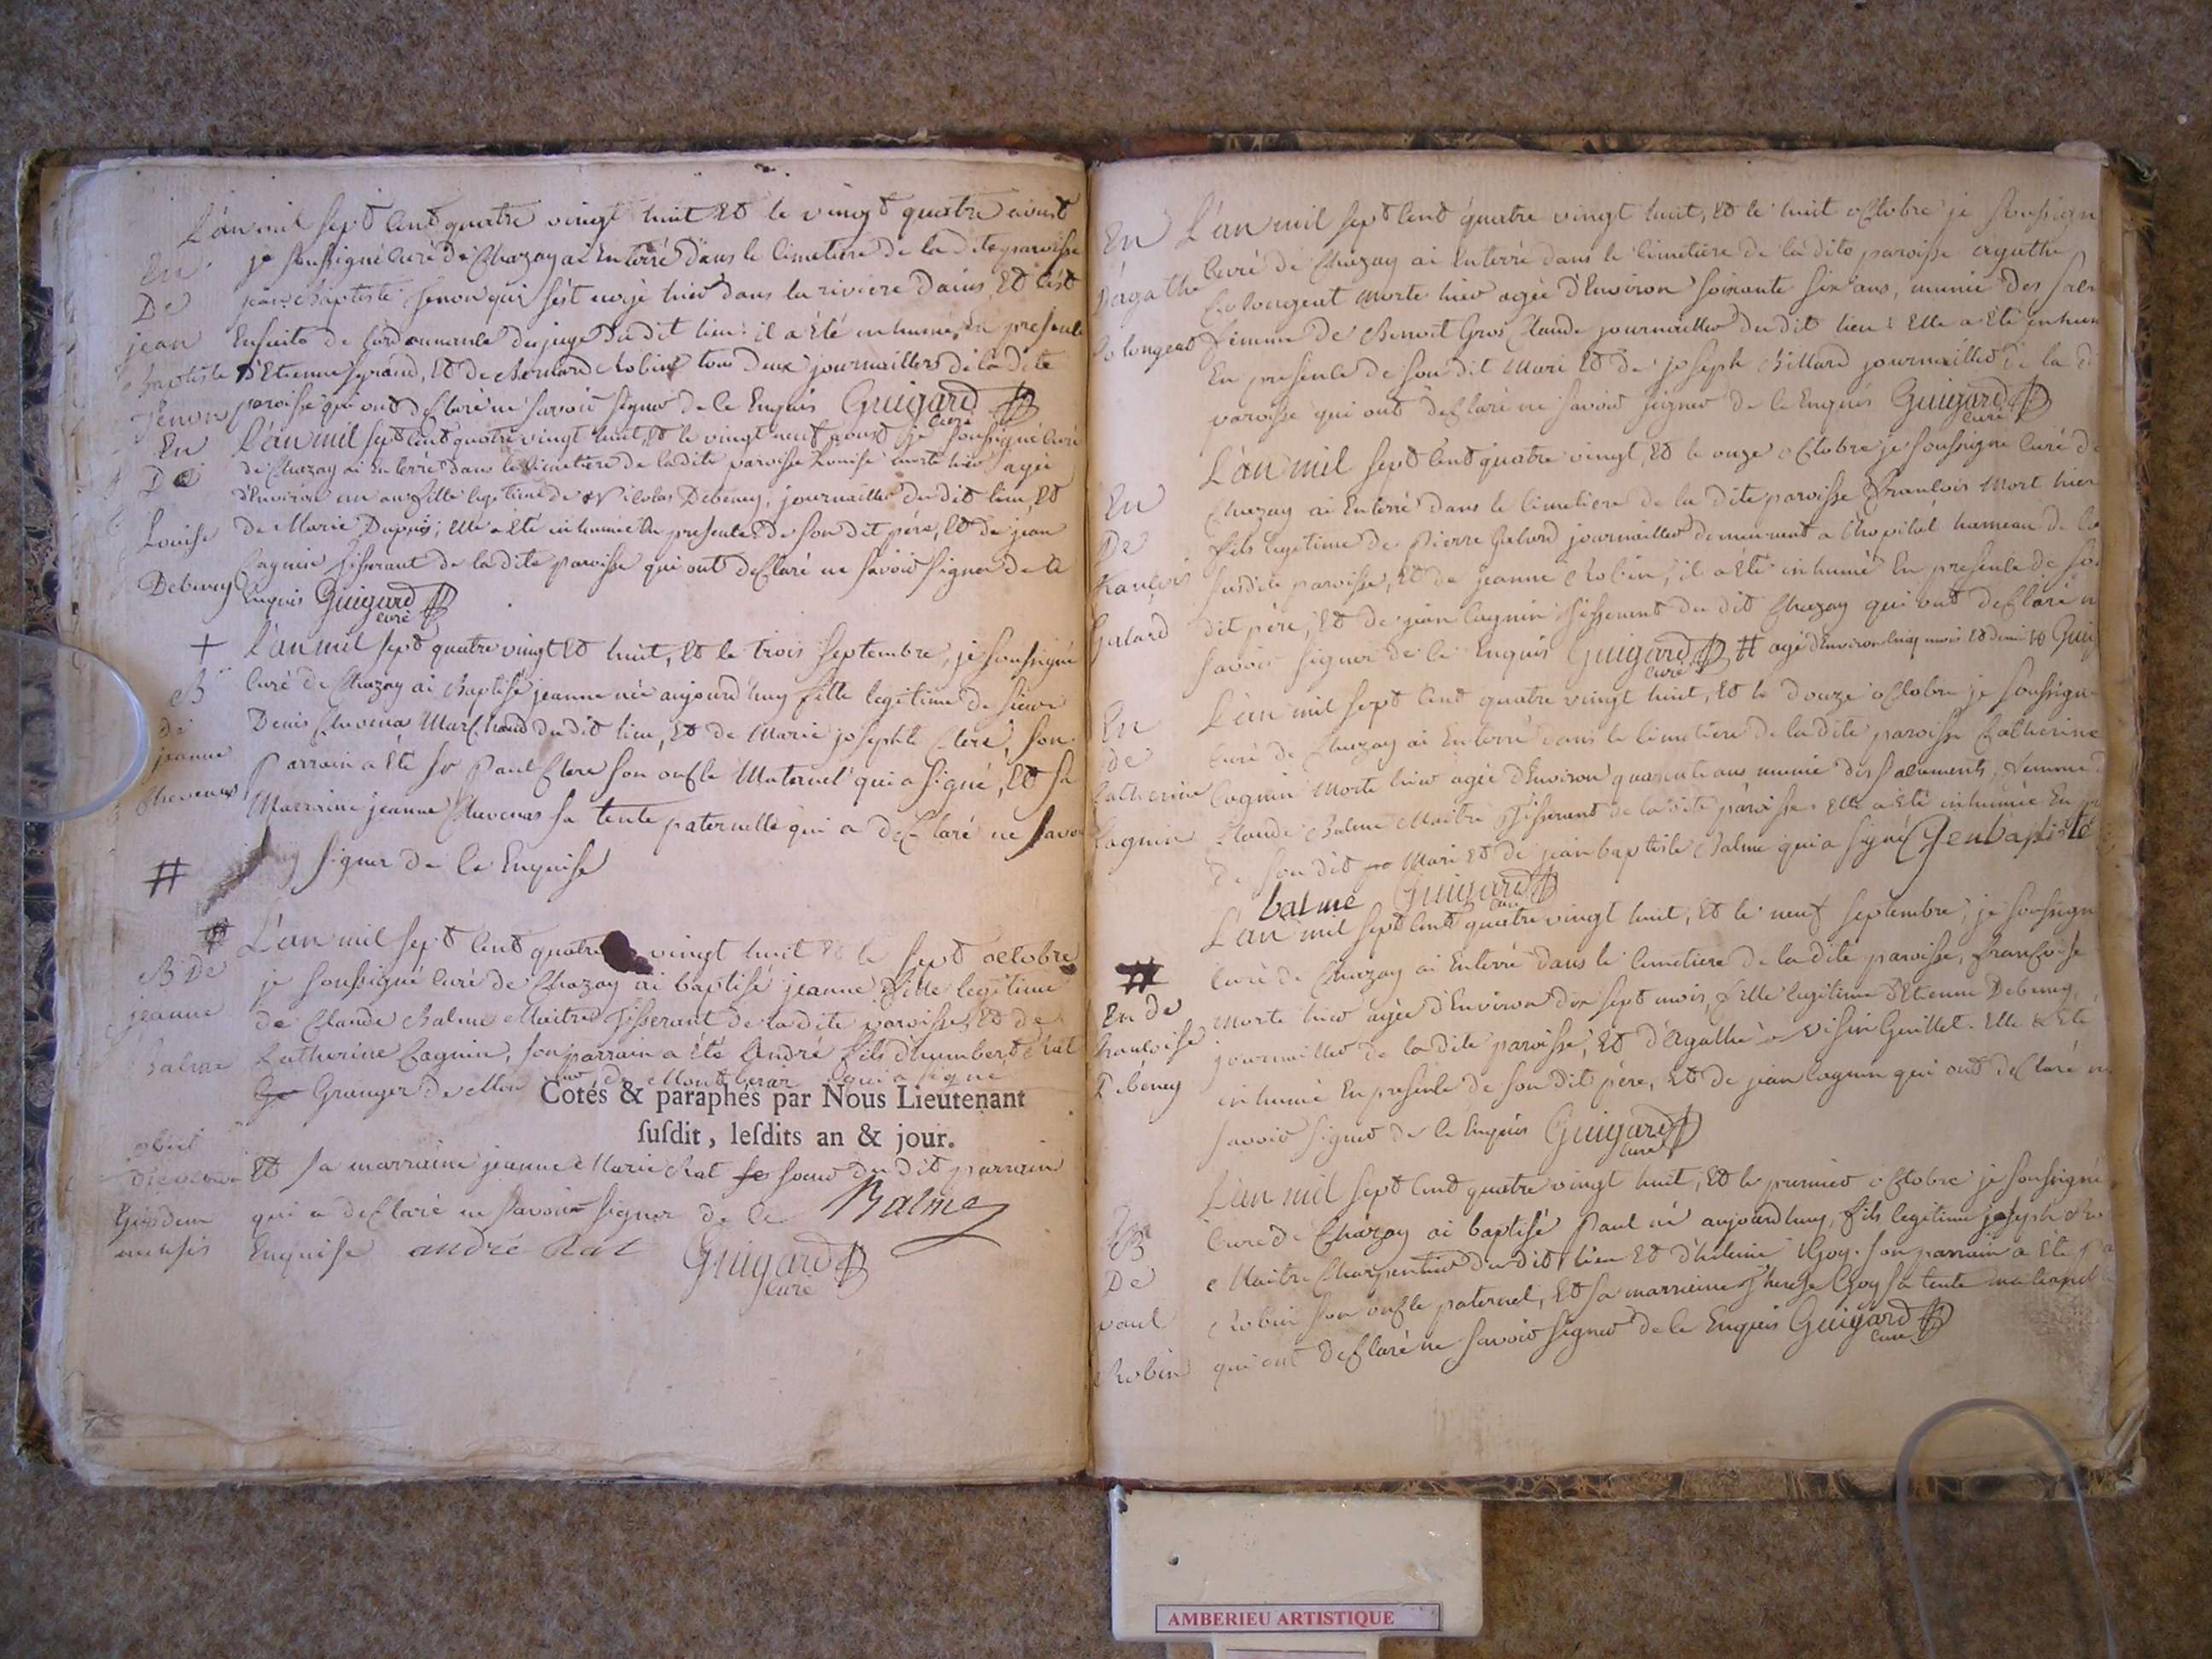 L'an mil sept Cent quatre vingt huit Et le vingt quatre aoust
En je soussigné Curé de Chazay ai Enterré dans le Cimetiere de la dite paroisse
De jean Baptiste Jenon qui s'est noyé hier dans la riviere Dains, Et c'est
jean Ensuite de l'ordonnance du juge du dit lieu: il a Eté inhumé En presence
Baptiste D'Etienne Eyraud, Et de Bernard Robin tous deux journaillers de la dite
Jenon paroisse qui ont deClaré ne savoir signer de Ce Enquis Guigard
curé
En L'an mil sept Cent quatre vingt huit, Et le vingt neuf aoust je soussigné Curé
De de Chazay ai Enterré dans le Cimetiere de la dite paroisse Louise morte hier agée
d'Environ un an fille legitime de Nicolas Debeney, journaillier du dit lieu, Et
Louise de Marie Dupuis; Elle a Eté inhumée En presence de son dit pére, Et de jean
Debeney Cagnin tisserant de la dite paroisse qui ont deClaré ne savoir signer de Ce
Enquis Guigard
curé
+ L'an mil sept quatre vingt Et huit, Et le trois Septembre, je soussigné
B Curé de Chazay ai Baptisé jeanne née aujourd'huy fille legitime de sieur
de Denis Chevenas Marchand du dit lieu, Et de Marie josephte Clerc, son
jeanne Parrain a Eté Sr Paul Clerc son onCle Maternel qui a signé, Et sa
Chevenas Marraine jeanne Chevenas sa tente paternelle qui a deClaré ne savoir
# signer de Ce Enquise
# L'an mil sept Cent quatre vingt huit Et le sept octobre
B De je soussigné Curé de Chazay ai baptisé jeanne fille legitime
jeanne de Claude Balme Maitre Tisserant de la dite paroisse Et de
Balme Catherine Cagnin, son parrain a été André fils d'humbert Rat
Granger de Mon de qui a signé
Cotés & paraphés par Nous Lieutenant
susdit, lesdits an & jour.
obiit
Et sa marraine jeanne Marie Rat soeur du dit parrain
Ejusdem qui a deClaré ne savoir signer de Ce Balme
mensis Enquise andré Rat Guigard
Curé
En L'an mil sept Cent quatre vingt huit, Et le huit oCtobre je soussigné
D'agathe Curé de Chazay ai Enterré dans le Cimetiere de la dite paroisse agathe
Colongeat morte hier agée d'Environ soixante six ans, munie des
Colongeat femme de Benoit Gros Claude journaillier du dit lieu: Elle a Eté
En presence de son dit Mari Et de joseph Billard journaillier de la
paroisse qui ont deClaré ne savoir signer de Ce Enquis Guigard
curé
L'an mil sept Cent quatre vingt, Et le onze oCtobre je soussigné Curé de
En Chazay ai Enterré dans le Cimetiere de la dite paroisse François Mort hier
De fils legitime de Pierre Galard journaillier demeurant a l'hopital hameau de la
François susdite paroisse, Et de jeanne Robin, il a Eté inhumé En presence de son
Galard dit pére, Et de jean Cagnin tisserant du dit Chazay qui ont deClaré ne
savoir signer de Ce Enquis Guigard # agé d'Environ Cinq mois Et demi
curé
En L'an mil sept Cent quatre vingt huit, Et le douze oCtobre je soussigné
de Curé de Chazay ai Enterré dans le Cimetiere de la dite paroisse Catherine
Catherine Cagnin Morte hier agée d'Environ quarante ans munie des saCrements, femme
Cagnin Claude Balme Maitre Tisserant de la dite paroisse. Elle a Eté inhumée En
de son dit Mari Et de jean baptiste Balme qui a signé Jenbaptiste
balme Guigard
curé
L'an mil sept Cent quatre vingt huit, Et le neuf septembre, je soussigné
# Curé de Chazay ai Enterré dans le Cimetiere de la dite paroisse, françoise
En de morte hier agée d'Environ dix sept mois, fille legitime d'Etienne Debeney,
françoise journaillier de la dite paroisse, Et d'Agathe Guillet. Elle a Eté
Debeney inhumée En presence de son dit pére, Et de jean Cagnin qui ont deClaré ne
savoir signer de Ce Enquis Guigard
Curé
L'an mil sept Cent quatre vingt huit, Et le premier oCtobre je soussigné
B Curé de Chazay ai baptisé Paul né aujourd'huy, fils legitime joseph
De Maitre Charpentier du dit lieu Et d'helene Goy. son parrain a Eté
paul Robin son onCle paternel, Et sa marraine Therese Goy sa tente
Robin qui ont deClaré ne savoir signer de Ce Enquis Guigard
Curé
AMBERIEU ARTISTIQUE